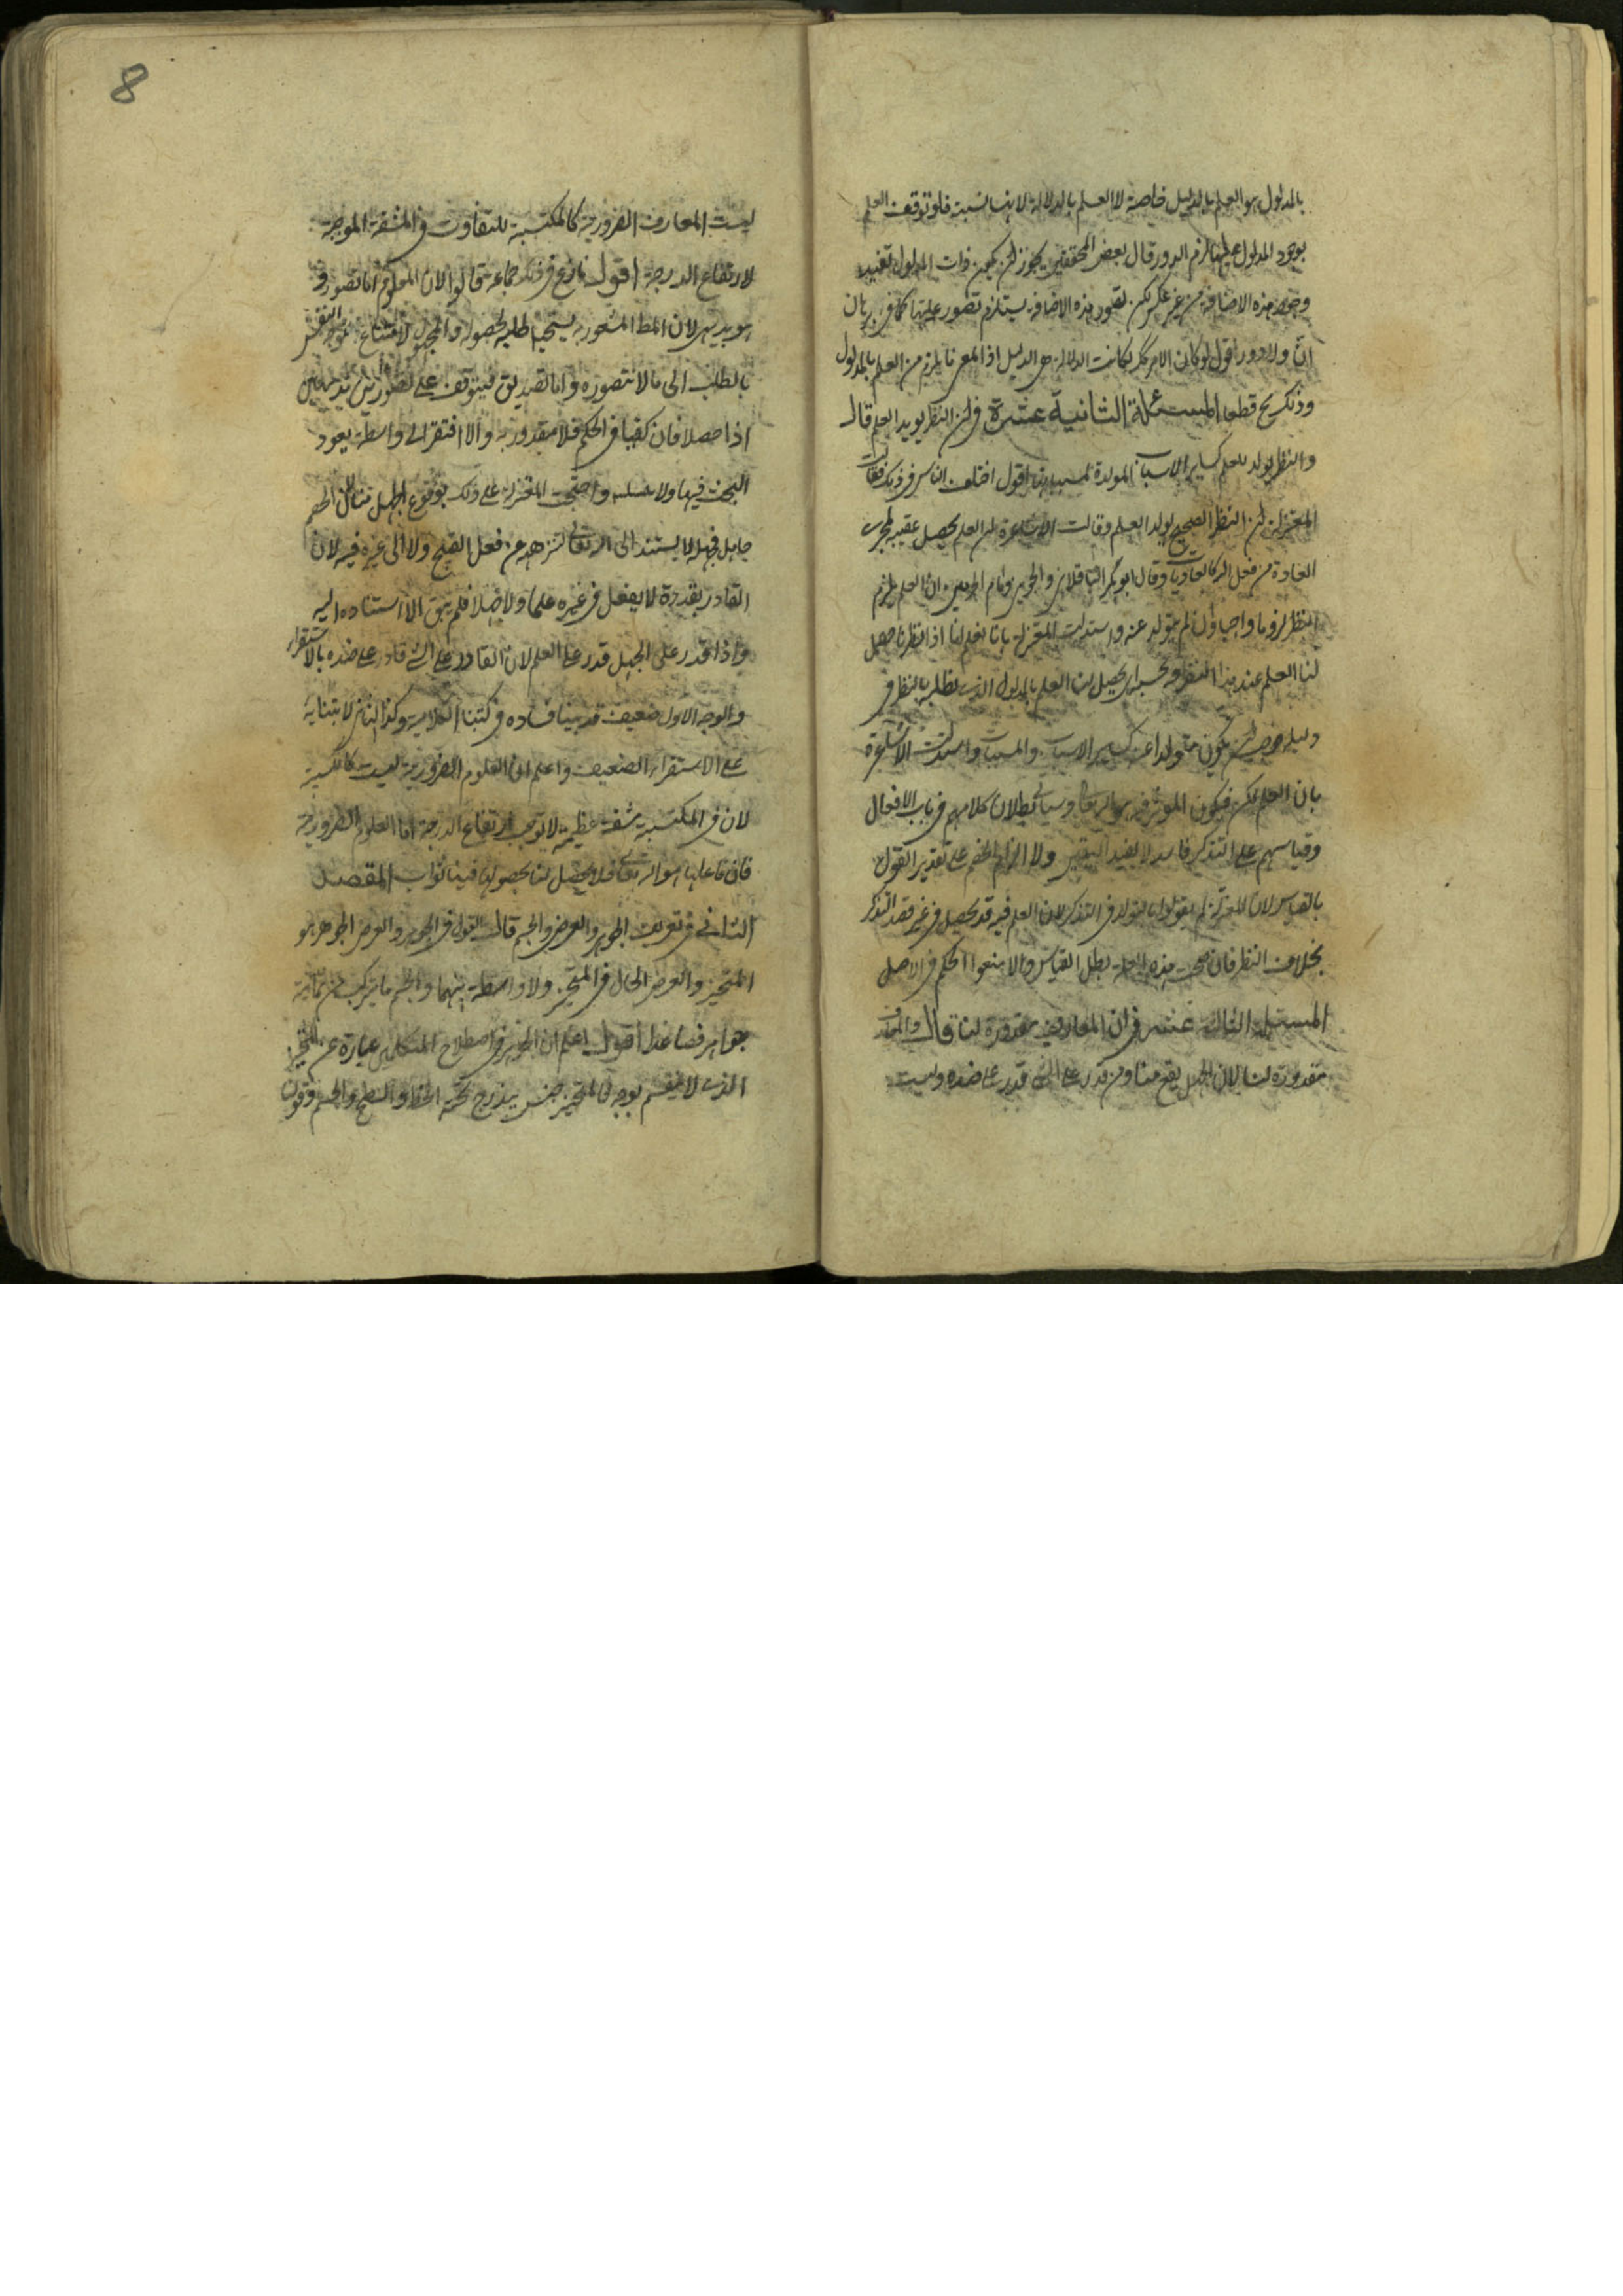 بالمدلول هو العلم بالدليل خاصة لا العلم بالدلالة لانها نسبة فلو توقف العلم
بوجود المدلول عليها لزم الدور وقال بعض المحققين يجوز ان يكون ذات المدلول تفيد
وجود هذه الاضافة من غير عكس لكن تصور هذه الاضافة يستلزم تصور عليتها كما في برهان
ان ولا دور اقول لو كان الامر كذلك لكانت الدلالة هي الدليل اذ المعنى ما يلزم من العلم بالمدلول
وذلك مح قطعا المسئلة الثانية عشرة في ان النظر يولد العلم قال
والنظر يولد العلم كساير الاسباب المولدة لمسبباتها اقول اختلف الناس في ذلك فقالت
المعتزلة ان النظر الصحيح يولد العلم وقالت الاشاعرة ان العلم يحصل عقيبه لمجرى
العادة من فعل الله كالعاديات وقال ابو بكر الباقلاني والجويني امام الحرمين ان العلم يلزم
النظر لزوما واجبا وان لم يتولد عنه واستدلت المعتزلة بانا نعلم انا اذا نظرنا حصل
لنا العلم عند هذا النظر وبحسبه اي يحصل لنا العلم بالمدلول الذي نطلبه بالنظر في
دليله فوجب ان يكون متولدا عنه كساير الاسباب والمسببات واستدلت الاشاعرة
بان العلم ممكن فيكون المؤثر فيه هو الله تعالى وسياتي بطلان كلامهم في باب الافعال
وقياسهم على التذكر فاسد لا يفيد اليقين ولا الزام الخصم على تقدير القول
بالقياس لان المعتزلة لم يقولوا بالتولد في التذكر لان العلم فيه قد يحصل من غير قصد التذكر
بخلاف النظر فان صحت هذه العلة بطل القياس والا منعوا الحكم في الاصل
المسئلة الثالثة عشر في ان المعارف مقدورة لنا قال والمعارف
مقدورة لنا لان الجهل يقع منا ومن قدر على الشئ قدر على ضده وليست
8
ليست المعارف الضرورية كالمكتسبة للتفاوت في المشقة الموجبة
لارتفاع الدرجة اقول نازع في ذلك جماعة قالوا لان المعلوم اما تصور و
هو بديهي لان المط المشعور به يستحيل طلبه لحصوله والمجهول لامتناع توجه النفس
بالطلب الى ما لا تتصوره واما تصديق فيتوقف على تصورين بديهيين
اذا حصلا فان كفيا في الحكم فلا مقدورية والا افتقر الى واسطة يعود
البحث فيها ولا تسلسل واحتجت المعتزلة على ذلك بوقوع الجهل منا لان الخصم
جاهل فجهله لا يستند الى الله تعالى لتنزهه عن فعل القبيح ولا الى غيره فيه لان
القادر بقدرة لا يفعل في غيره علما ولا جهلا فلم يبق الا استناده اليه
واذا قدر على الجهل قدر على العلم لان القادر على الشئ قادر على ضده بالاستقراء
والوجه الاول ضعيف قد بينا فساده في كتبنا الكلامية وكذا الثاني لابتنائه
على الاستقراء الضعيف واعلم ان العلوم الضرورية ليست كالكسبية
لان في المكتسبة مشقة عظيمة لا توجب ارتفاع الدرجة اما العلوم الضرورية
فان فاعلها هو الله تعالى فلا يحصل لنا بحصولها فينا ثواب المقصد
الثاني في تعريف الجوهر والعرض والجسم قال القول في الجوهر والعرض الجوهر هو
المتحيز والعرض الحال في المتحيز ولا واسطة بينهما والجسم ما يتركب من ثمانية
جواهر فصاعدا اقول اعلم ان الجوهر في اصطلاح المتكلمين عبارة عن المتحيز
الذي لا ينقسم بوجه فالمتحيز جنس يندرج تحته الخط والسطح والجسم وقولنا